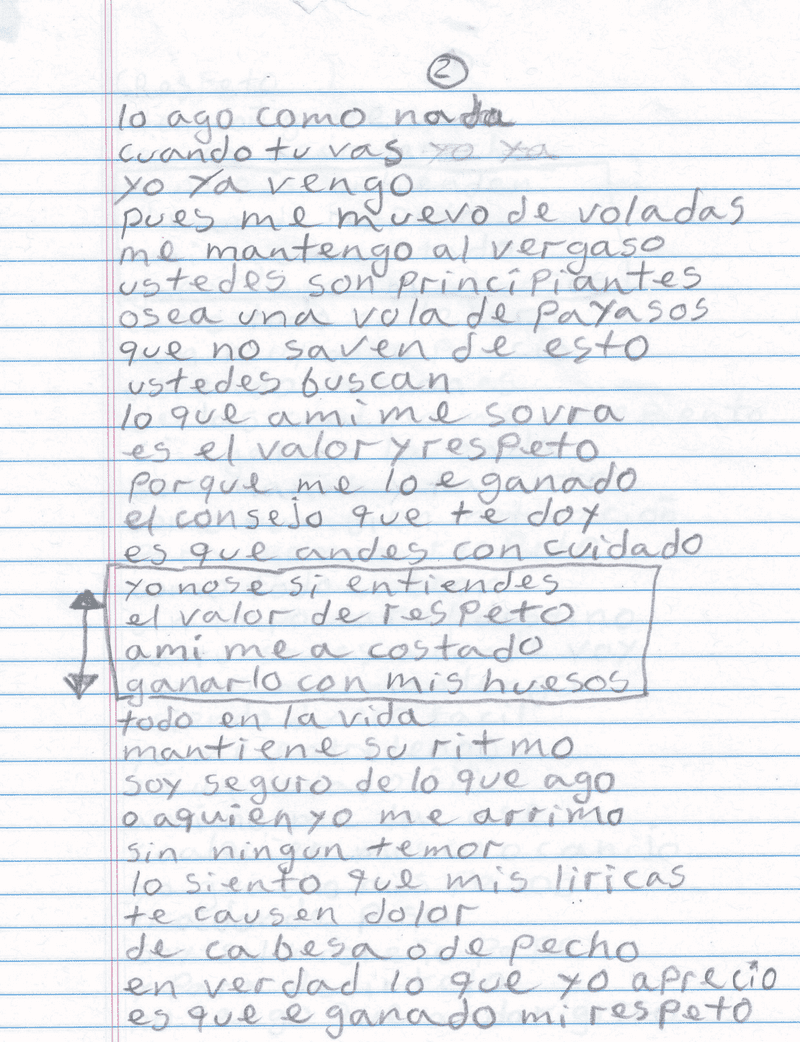 2
lo ago como nada
cuando tu vas yo ya
yo ya vengo
pues me muevo de voladas
me mantengo al vergaso
ustedes son principiantes
osea una vola de payasos
que no saven de esto
ustedes buscan
lo que ami me sovra
es el valor y respeto
porque me lo e ganado
el consejo que te doy
es que andes con cuidado
yo nose si entiendes
el valor de respeto
ami me a costado
ganarlo con mis huesos
todo en la vida
mantiene su ritmo
soy seguro de lo que ago
o aquien yo me arrimo
sin ningun temor
lo siento que mis liricas
te causen dolor
de cabesa o de pecho
en verdad lo que yo aprecio
es que e ganado mi respeto